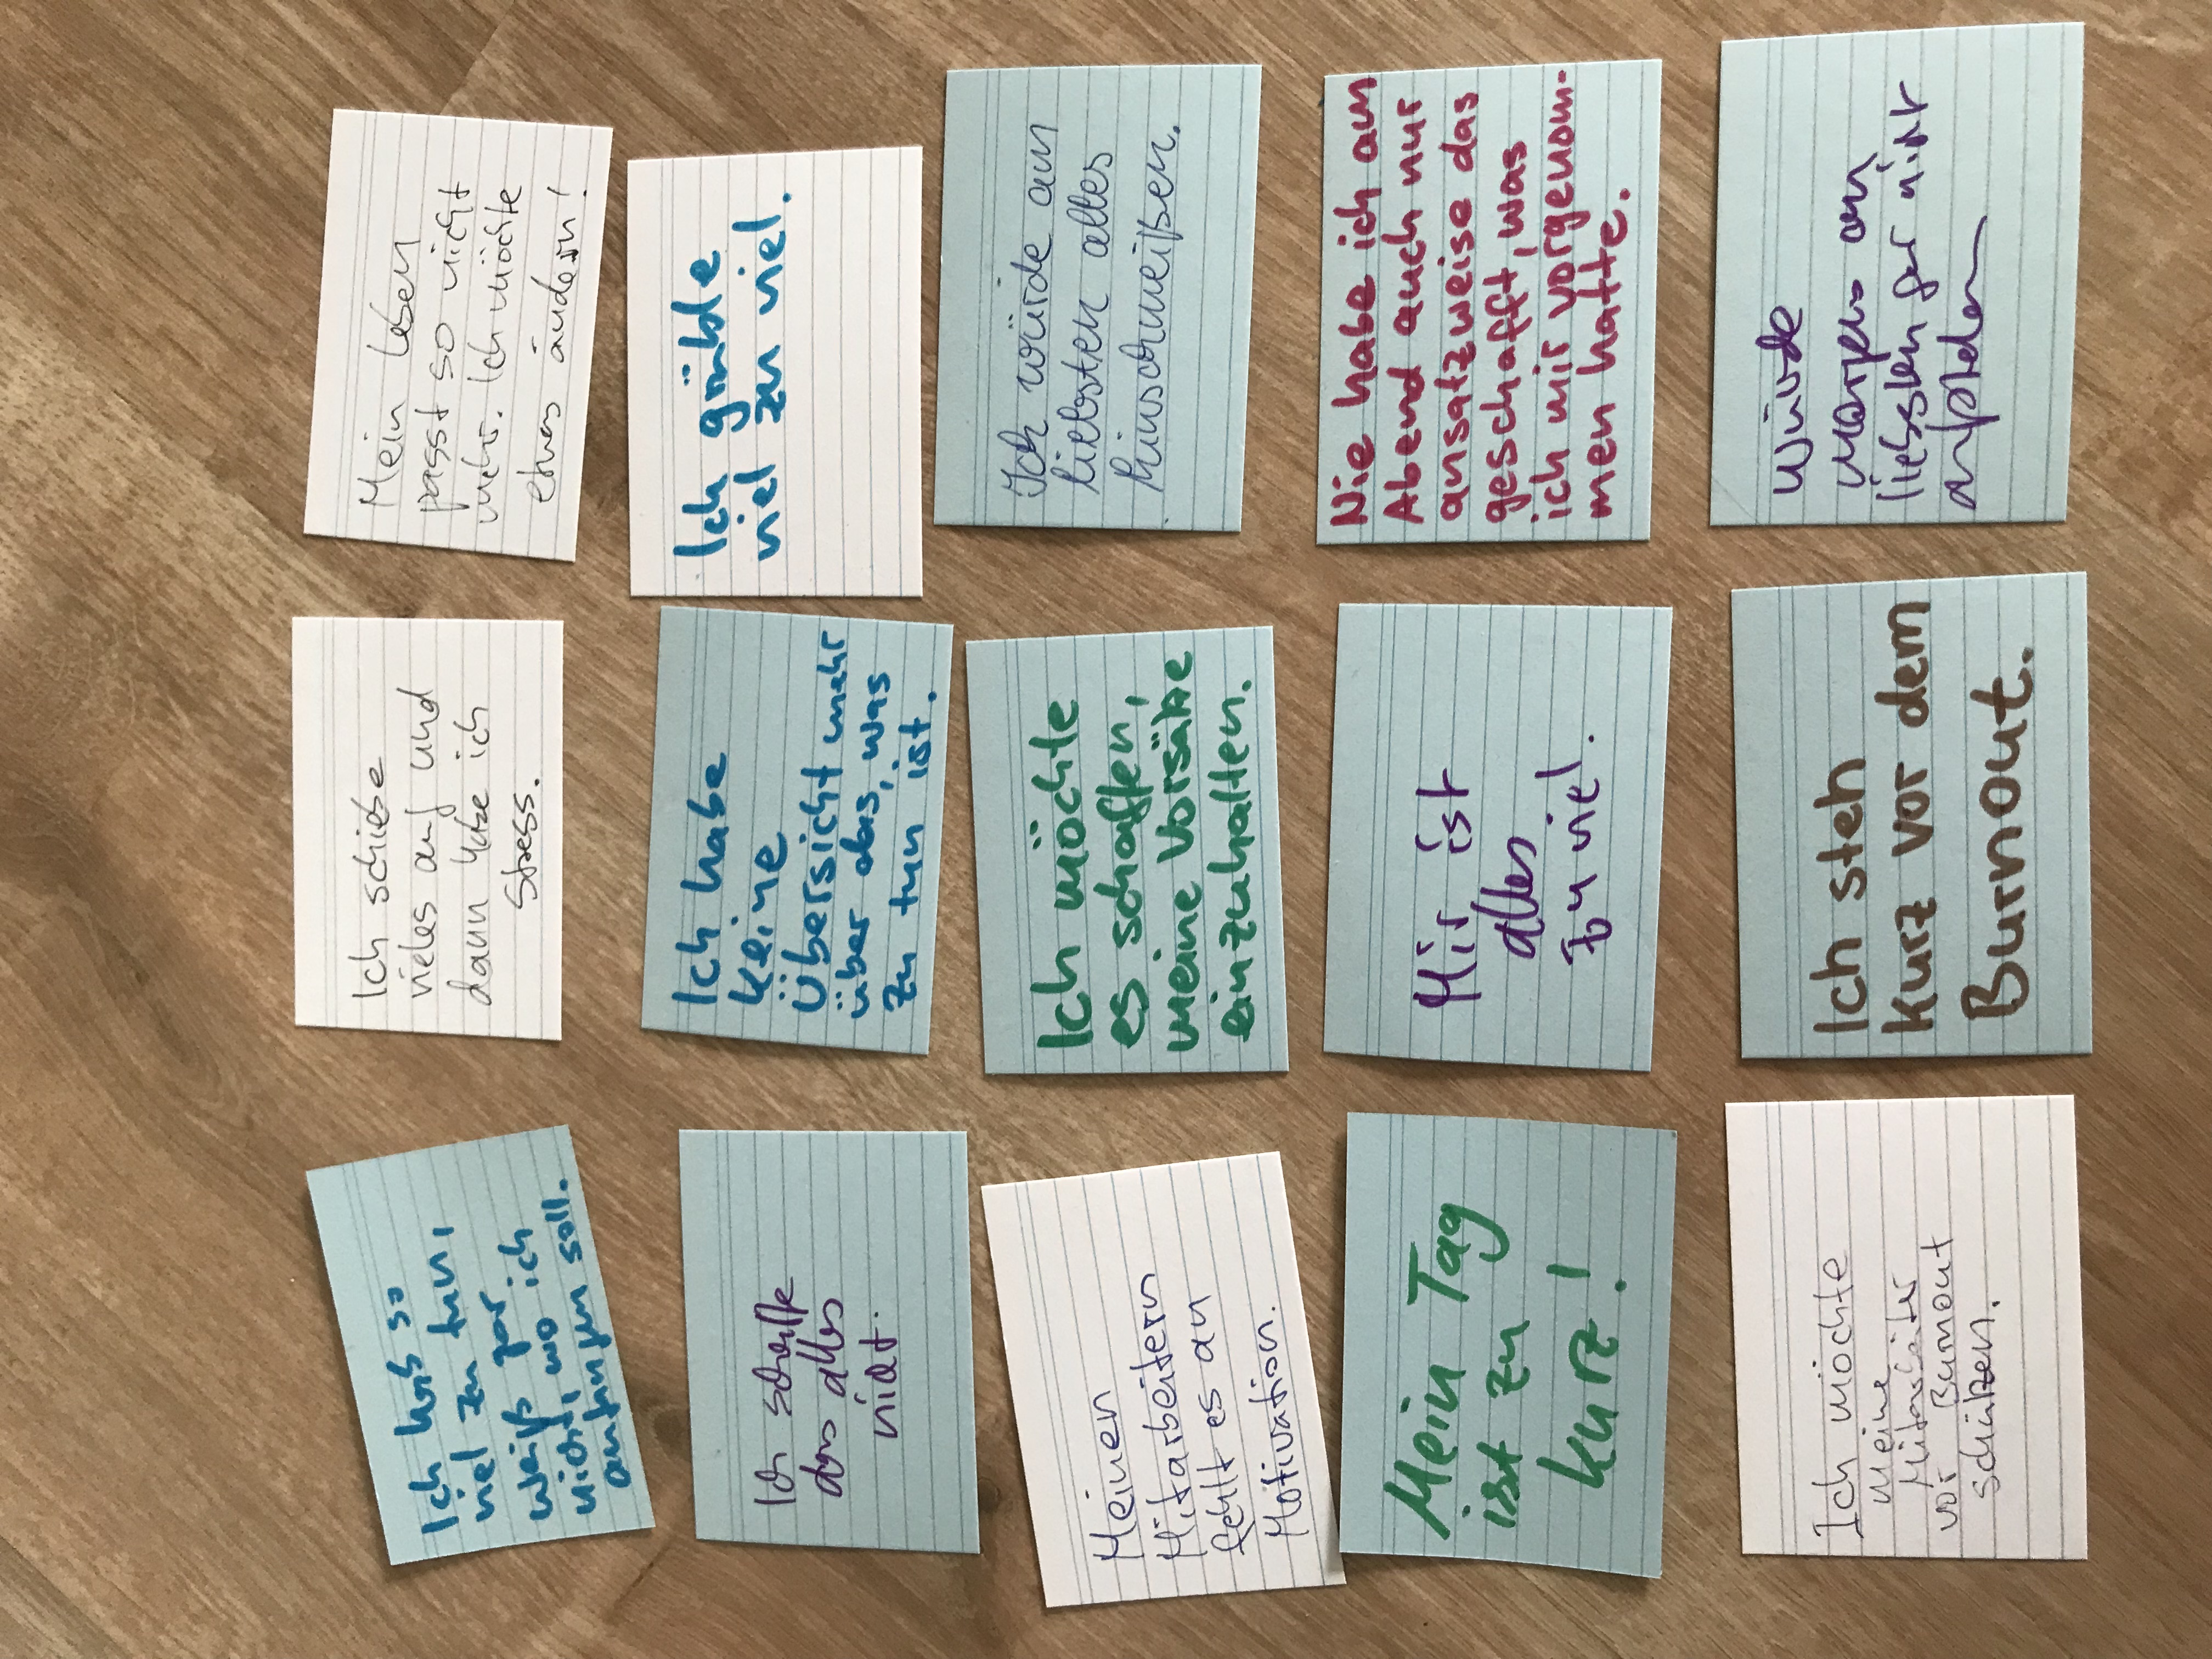 Ich hab so
viel zu tun,
weiß gar
nicht, wo ich
anfangen soll.
Ich schiebe
vieles auf und
dann habe ich
Stress.
Mein Leben
passt so nicht
mehr. Ich möchte
etwas ändern!
Ich schaffe
das alles
nicht.
Ich habe
keine
Übersicht mehr
über das, was
zu tun ist.
Ich grüble
viel zu viel.
Meinen
Mitarbeitern
fehlt es an
Motivation.
Ich möchte
es schaffen,
meine Vorsätze
einzuhalten.
Ich würde am
liebsten alles
hinschmeißen.
Mein Tag
ist zu
kurz!
Mir ist
alles
zu viel.
Nie habe ich am
Abend auch nur
ansatzweise das
geschafft, was
ich mir vorgenom-
men hatte.
Ich möchte
meine
Mitarbeiter
vor Burnout
schützen.
Ich steh
kurz vor dem
Burnout.
Würde
morgens am
liebsten gar nicht
aufstehen